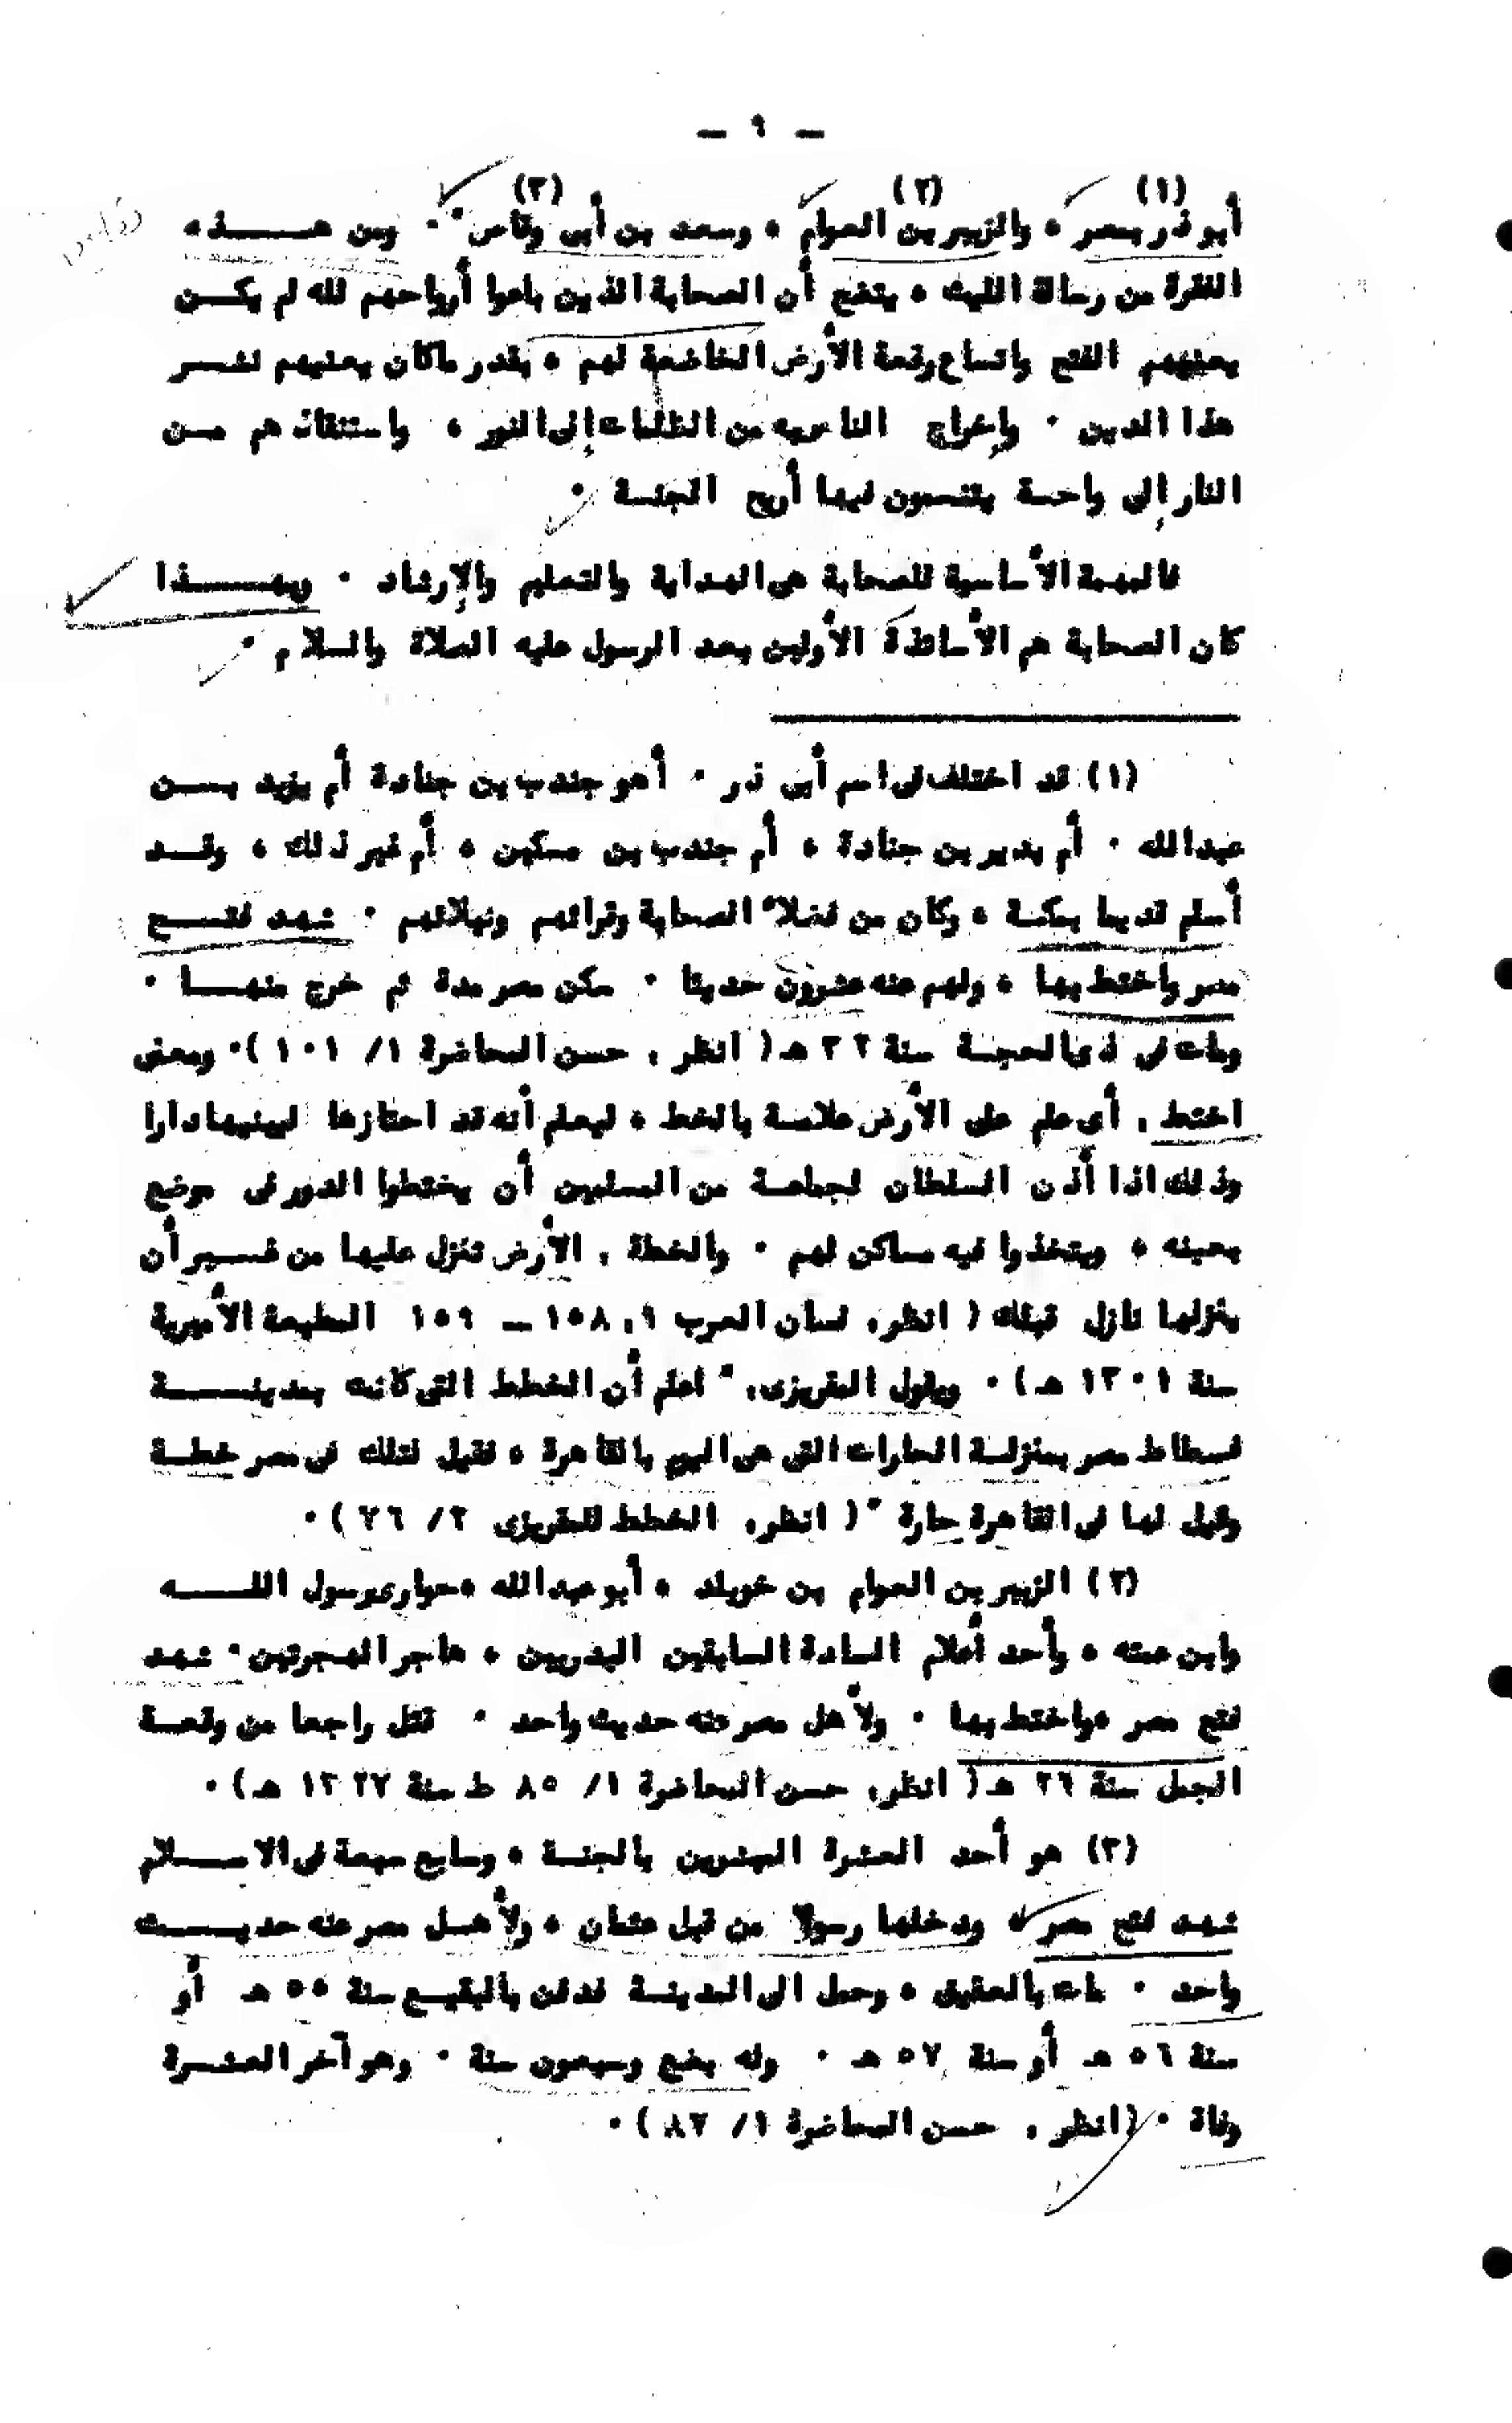 — ٩ —
أبو ذر بمصر (١) ، والزبير بن العوام (٢) ، وسعد بن أبى وقاص (٣) " ٠ ومن هـــــذه
الفقرة من رسالة الليث ، يتضح أن الصحابة الذين باعوا أرواحهم لله لم يكــن
يعنيهم الفتح واتساع رقعة الأرض الخاضعة لهم ، بقدر ماكان يعنيهم نشــر
هذا الدين ٠ وإخراج الناس به من الظلمات إلى النور ، واستنقاذهم مــن
النار إلى واحـة يتنسمون فيها أريج الجنـة ٠
فالمهمة الأساسية للصحابة هى الهداية والتعليم والإرشاد ٠ وبهـــــذا
كان الصحابة هم الأساتذة الأولين بعد الرسول عليه الصلاة والسلام ٠
(١) قد اختلف فى اسم أبى ذر ٠ أهو جندب بن جنادة أم يزيد بـــن
عبدالله ٠ أم بدير بن جنادة ، أم جندب بن سكين ، أم غير ذلك ، وقــد
أسلم قديما بمكـة ، وكان من فضلاء الصحابة وقرائهم ونبلائهم ٠ شهد فتـــح
مصر واختط بها ، ولهم عنه عشرون حديثا ٠ سكن مصر مدة ثم خرج منهـــا ٠
ومات فى ذى الحجـة سنة ٣٢ هـ ( انظر : حسن المحاضرة ١/ ١٠١ )٠ ومعنى
اختط : أى علم على الأرض علامـة بالخط ، ليعلم أنه قد احتازها ليبنيها دارا
وذلك اذا أذن السلطان لجماعـة من المسلمين أن يختطوا الدور فى موضع
بعينه ، ويتخذوا فيه مساكن لهم ٠ والخطة : الأرض تنزل عليها من غــير أن
ينزلها نازل قبلك ( انظر: لسان العرب ٩: ١٥٨ — ١٥٩ المطبعة الأميرية
سنة ١٣٠١ هـ) ٠ ويقول المقريزى: " اعلم أن الخطط التى كانت بمدينــــة
فسطاط مصر بمنزلـة الحارات التى هى اليوم بالقاهرة ، فقيل لتلك فى مصر خطـة
وقيل لها فى القاهرة حارة "( انظر: الخطط للمقريزى ٢/ ٧٦ )٠
(٢) الزبير بن العوام بن خويلد ، أبو عبدالله ،حوارى رسول اللـــــه
وابن عمته ، وأحد أعلام السادة السابقين البدريين ، هاجر الهجرتين ٠ شهد
فتح مصر ،واختط بها ٠ ولأهل مصر عنه حديث واحد ٠ قتل راجعا من وقعـة
الجمل سنة ٣٦ هـ ( انظر: حسن المحاضرة ١/ ٨٥ ط سنة ١٣٢٧ هـ) ٠
(٣) هو أحد العشرة المبشرين بالجنـة ، وسابع سبعة فى الاســـلام
شهد فتح مصر ، ودخلها رسولا من قبل عثمان ، ولأهـل مصر عنه حديـــث
واحد ٠ مات بالعقيق ، وحمل الى المدينـة فدفن بالبقيـع سنة ٥٥ هـ أو
سنة ٥٦ هـ أو سنة ٥٧ هـ ٠ وله بضع وسبعون سنة ٠ وهو آخر العشــرة
وفاة ٠ (انظر : حسن المحاضرة ١/ ٨٧ )٠